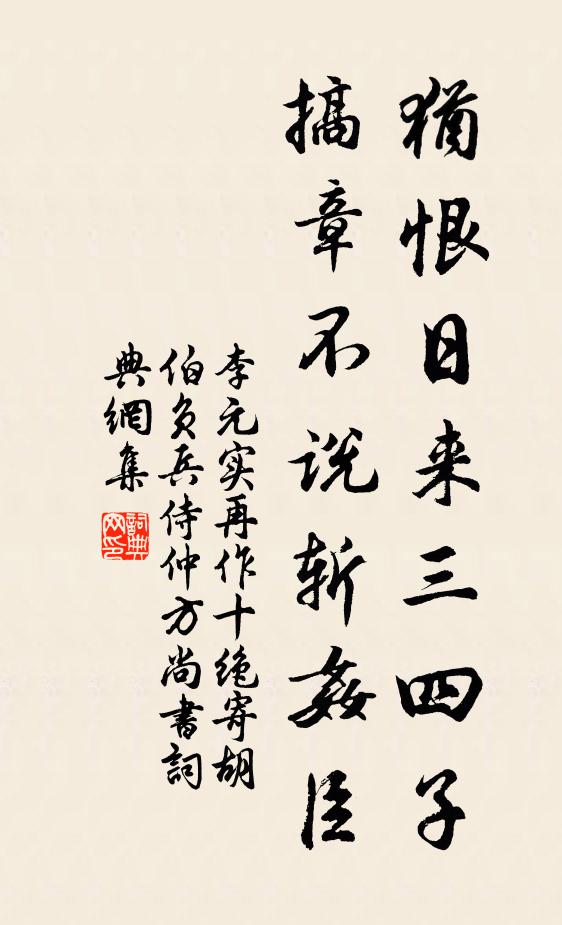 猶恨日来三四子
摛章不说斩姦臣
李元实再作十绝寄胡
伯负兵侍仲方尚書詞
典網集
詞典
网印